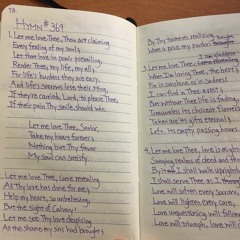 78.
HYMN #369
1. Let me love Thee, Thou art claiming
Every feeling of my soul;
Let that love in pow'r prevailing,
Render Thee my life, my all.
For life's burdens they are easy,
And life's sorrows lose their sting,
If they're carried, Lord, to please Thee,
If their pain Thy smile should win.
Let me love Thee, Savior,
Take my heart forever;
Nothing but Thy favor
My soul can satisfy.
2. Let me love Thee, come revealing
All Thy love has done for me,
Help my heart, so unbelieving
By the sight of Calvary;
Let me see Thy love despising
All the shame my sins had brought
By Thy torments realizing
What a price my pardon bought
3. Let me love Thee,
When I'm loving Thee, the
For in sunshine or in sadness
I can find in Thee a rest;
But without Thee life is
4. Let me love Thee, love is mighty
Swaying realms of deed and
By it I shall walk uprightly
I shall serve Thee as I
Love will soften every
Love will lighten every care,
Love unquestioning will follow
Love will triumph, love will